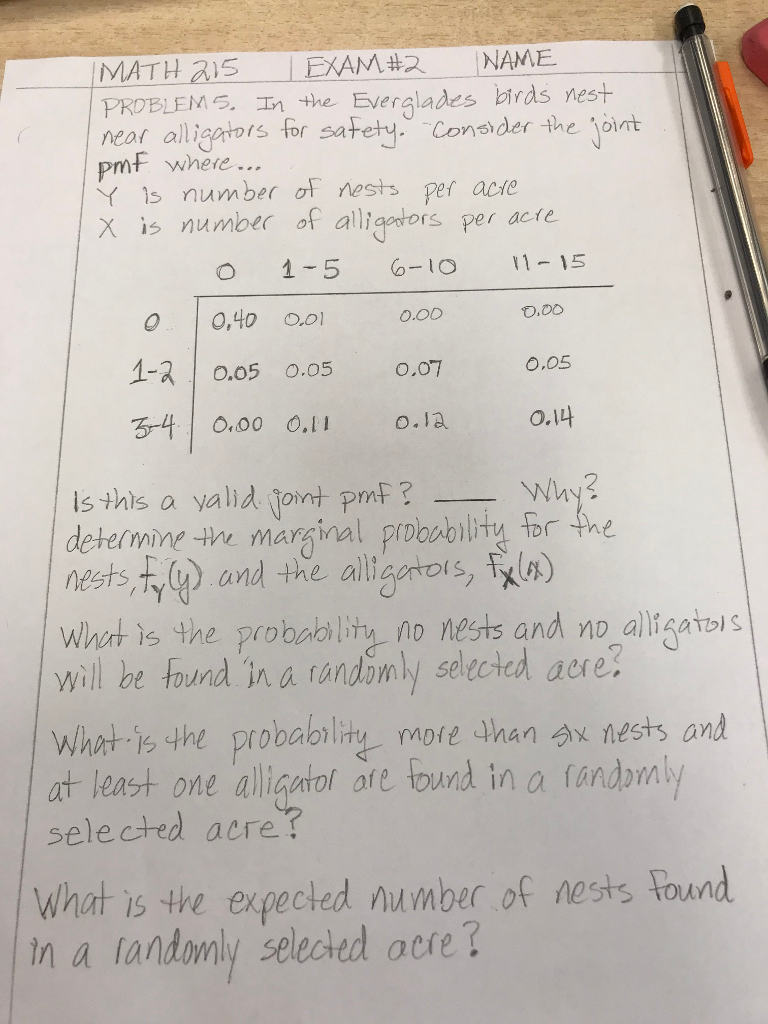 MATH 215 EXAM #2 NAME
PROBLEM 5. In the Everglades birds nest
near alligators for safety. Consider the joint
pmf where...
Y is number of nests per acre
X is number of alligators per acre
0 1-5 6-10 11-15
0 0.40 0.01 0.00 0.00
1-2 0.05 0.05 0.07 0.05
3-4 0.00 0.11 0.12 0.14
Is this a valid joint pmf? ____ Why?
determine the marginal probability for the
nests, fY(y) and the alligators, fX(x)
What is the probability no nests and no alligators
will be found in a randomly selected acre?
What is the probability more than six nests and
at least one alligator are found in a randomly
selected acre?
What is the expected number of nests found
in a randomly selected acre?